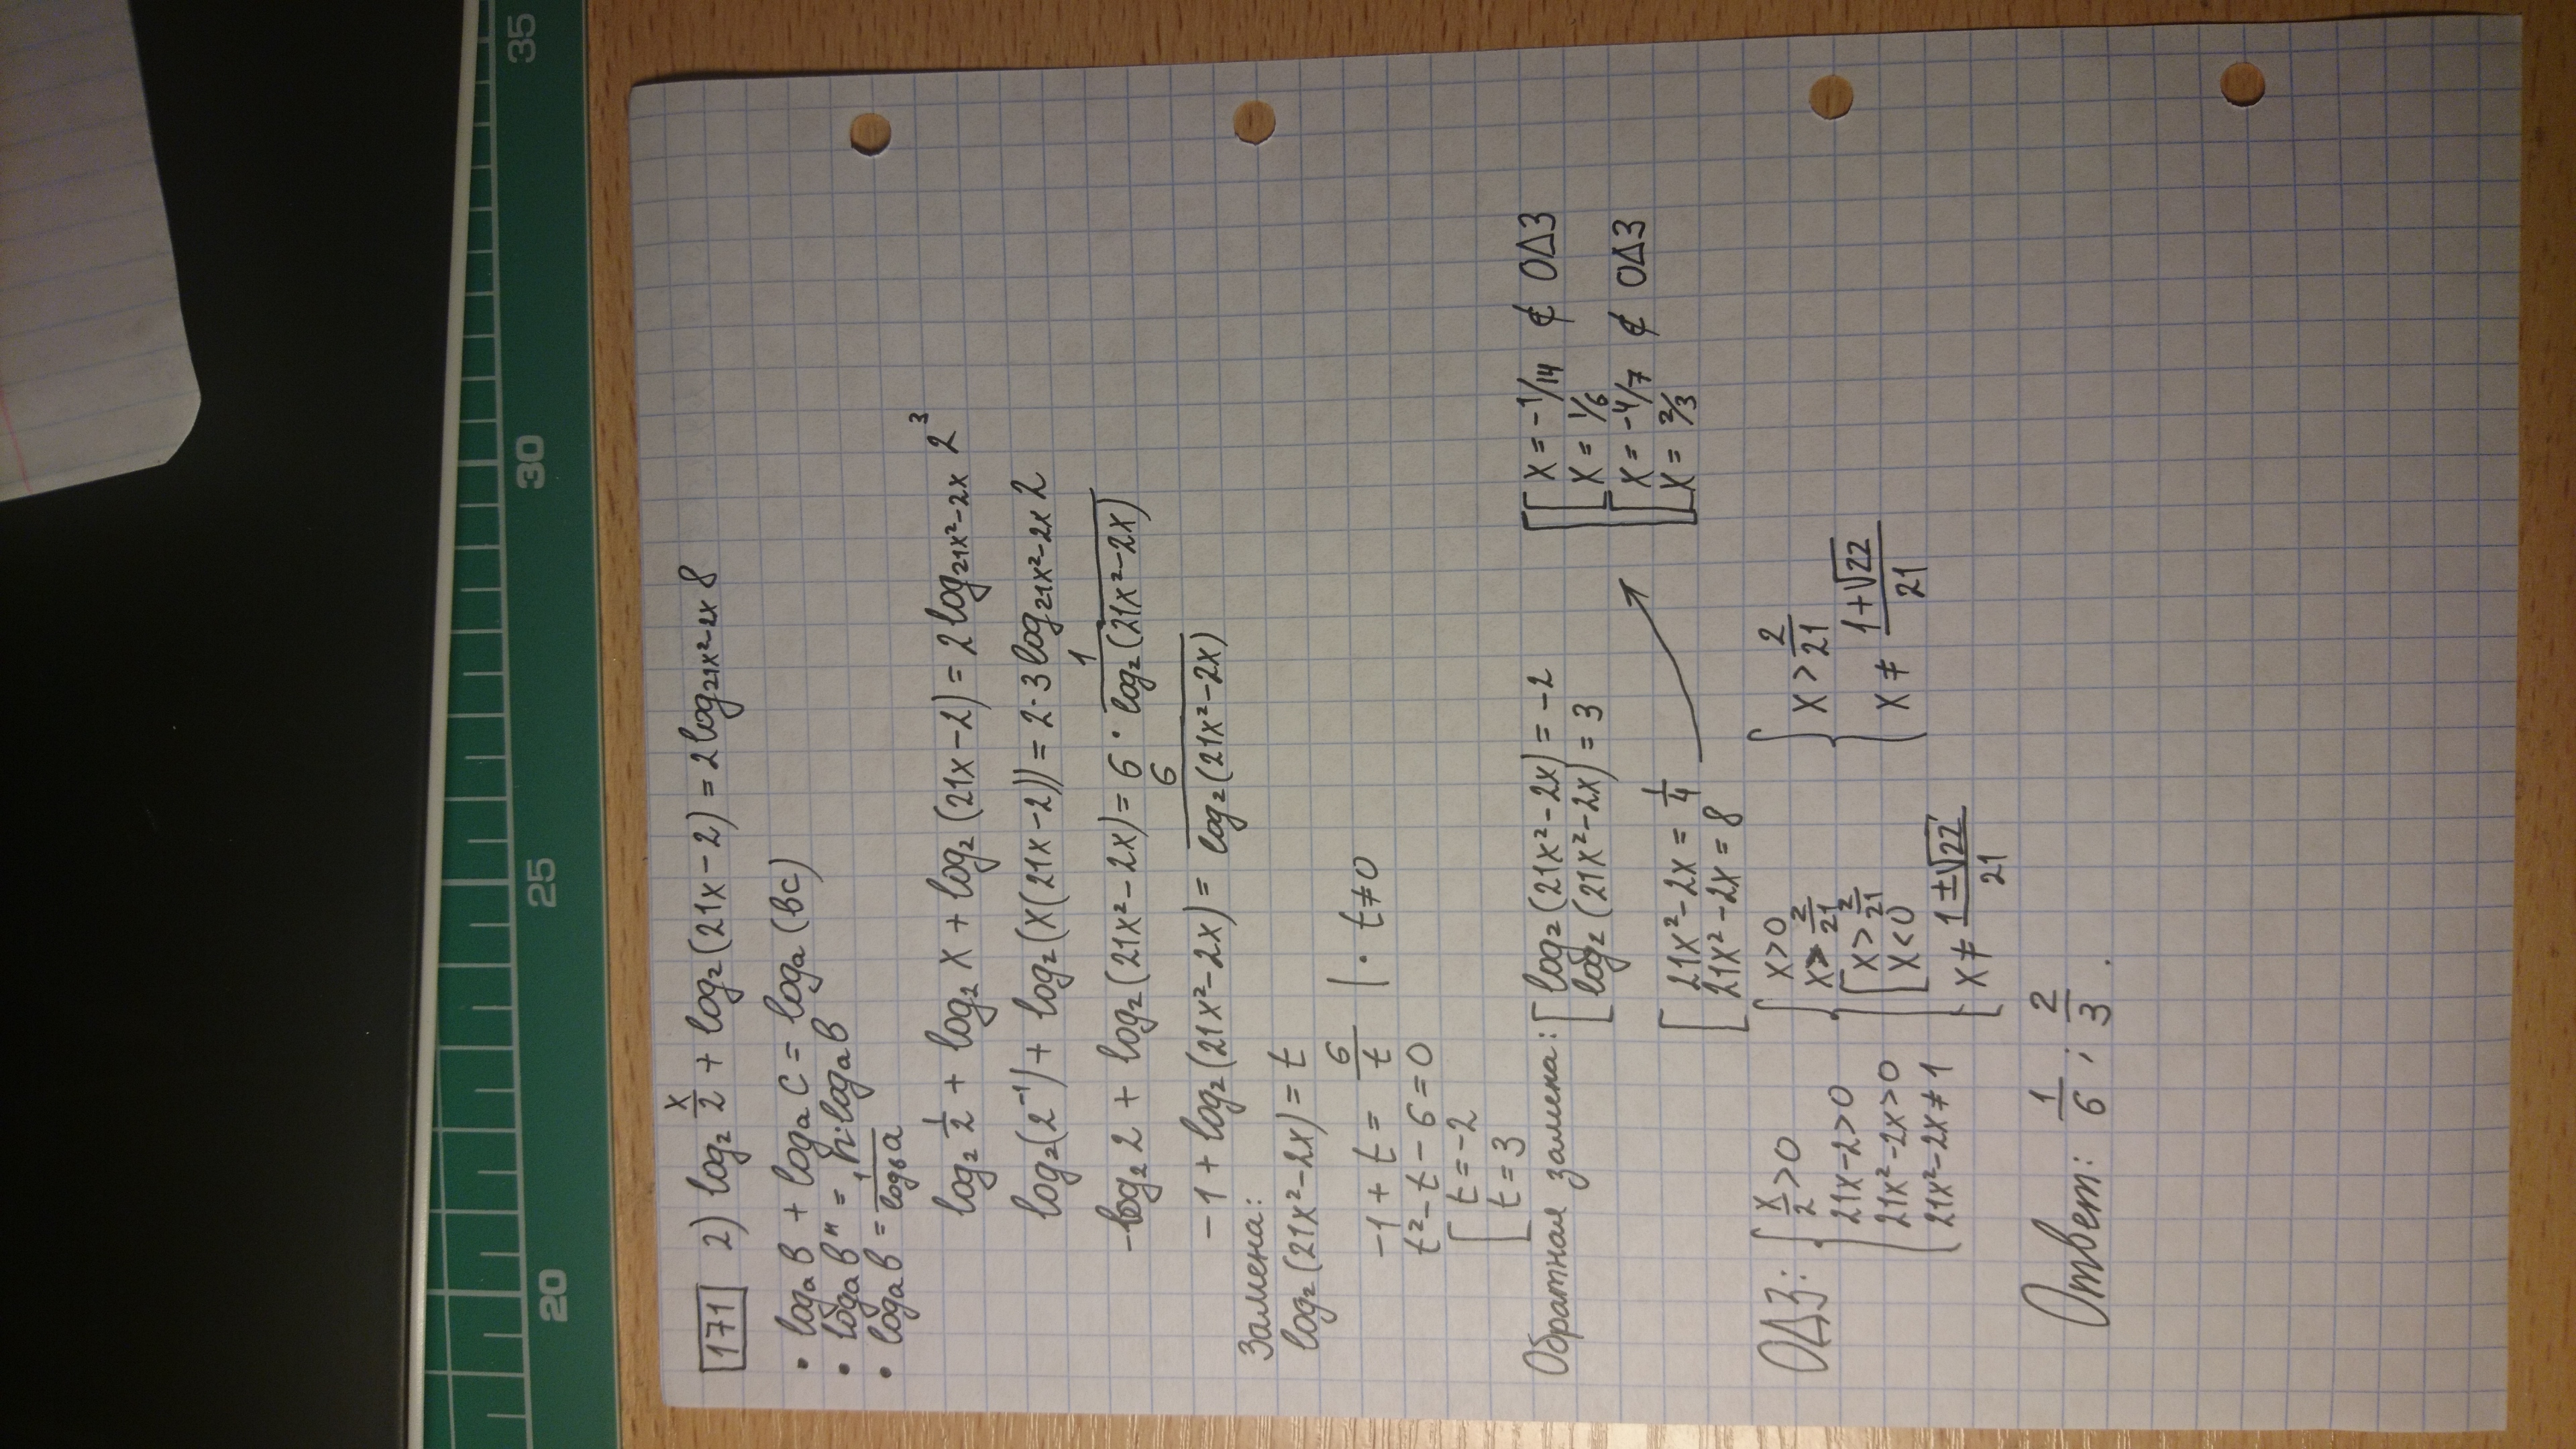 171 2) log₂ x/2 + log₂(21x-2) = 2log₂₁ₓ²₋₂ₓ 8
• logₐb + logₐc = logₐ(bc)
• logₐbⁿ = n·logₐb
• logₐb = 1/log_b a
log₂ 1/2 + log₂x + log₂(21x-2) = 2log₂₁ₓ²₋₂ₓ 2³
log₂(2⁻¹) + log₂(x(21x-2)) = 2·3log₂₁ₓ²₋₂ₓ 2
-log₂2 + log₂(21x²-2x) = 6 · 1/log₂(21x²-2x)
-1 + log₂(21x²-2x) = 6/log₂(21x²-2x)
Замена:
log₂(21x²-2x) = t
-1 + t = 6/t | · t≠0
t² - t - 6 = 0
[ t = -2
[ t = 3
Обратная замена: [ log₂(21x²-2x) = -2
[ log₂(21x²-2x) = 3
[ 21x²-2x = 1/4
[ 21x²-2x = 8
[ [ x = -1/14 ∉ ОДЗ
[ x = 1/6
[ [ x = -4/7 ∉ ОДЗ
[ x = 2/3
ОДЗ: { x/2 > 0
{ 21x-2 > 0
{ 21x²-2x > 0
{ 21x²-2x ≠ 1
{ x > 0
{ x > 2/21
{ [ x > 2/21
[ x < 0
{ x ≠ (1±√22)/21
{ x > 2/21
{ x ≠ (1+√22)/21
Ответ: 1/6 ; 2/3 .
20 25 30 35